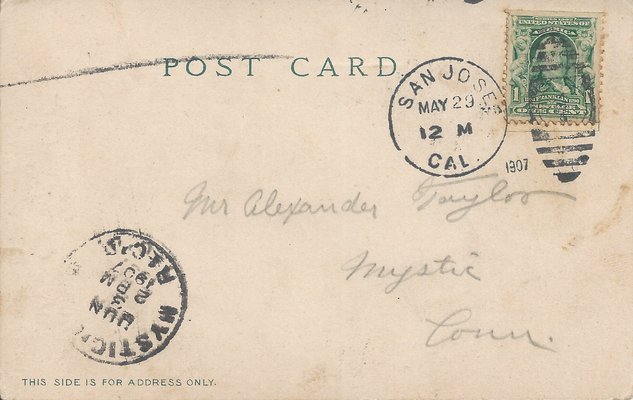 SERIES 1902
UNITED STATES OF
AMERICA
1
1
FRANKLIN
POSTAGE
ONE CENT
POST CARD.
SAN JOSE
MAY 29
12 M
CAL.
1907
Mr Alexander Taylor
Mystic
Conn.
MYSTIC
JUN
2 PM
1907
REC'D.
THIS SIDE IS FOR ADDRESS ONLY.